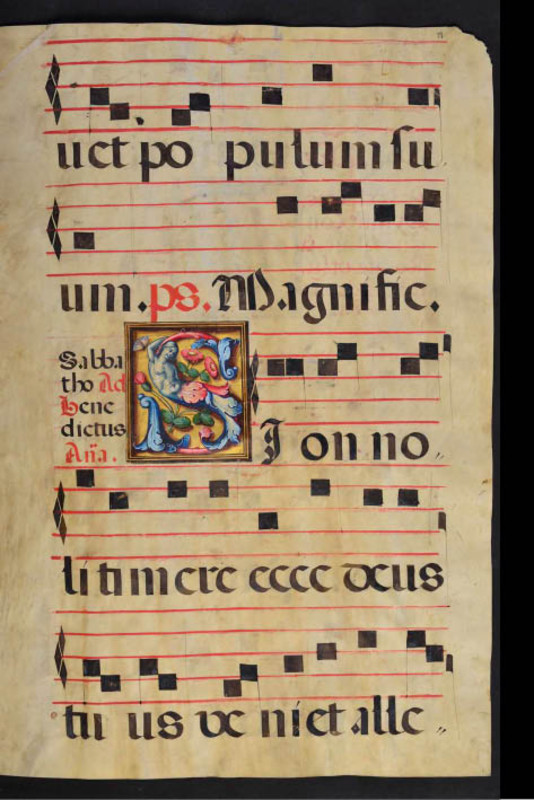 uet po pulum su
um. ps. Magnific.
Sabba
tho Ad
Bene
dictus
Aña.
SI on no
li timere ecce deus
tu us ve niet alle